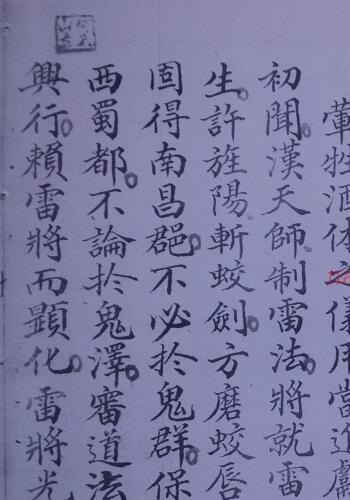 葷牲酒体儀用當近獻
初聞。漢天師制雷法。將就雷
生。許旌陽斬蛟劍。方磨蛟唇
固得南昌郡。不必於鬼群。保
西蜀都。不論於鬼澤。審道法
興行。賴雷將而顯化。雷將光